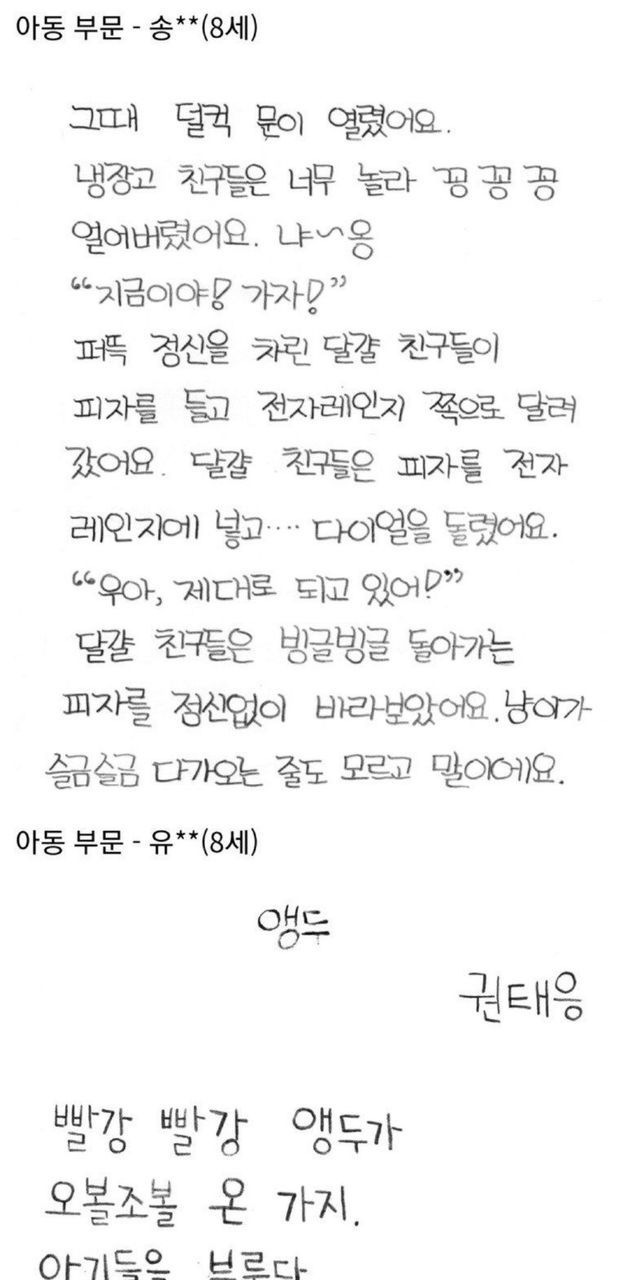 아동 부문 - 송**(8세)
그때 덜컥 문이 열렸어요.
냉장고 친구들은 너무 놀라 꽁 꽁 꽁
얼어버렸어요. 냐~옹
“지금이야! 가자!”
퍼뜩 정신을 차린 달걀 친구들이
피자를 들고 전자레인지 쪽으로 달려
갔어요. 달걀 친구들은 피자를 전자
레인지에 넣고···· 다이얼을 돌렸어요.
“우아, 제대로 되고 있어!”
달걀 친구들은 빙글빙글 돌아가는
피자를 정신없이 바라보았어요. 냥이가
슬금슬금 다가오는 줄도 모르고 말이에요.
아동 부문 - 유**(8세)
앵두
권태응
빨강 빨강 앵두가
오볼조볼 온 가지.
아기들을 부른다